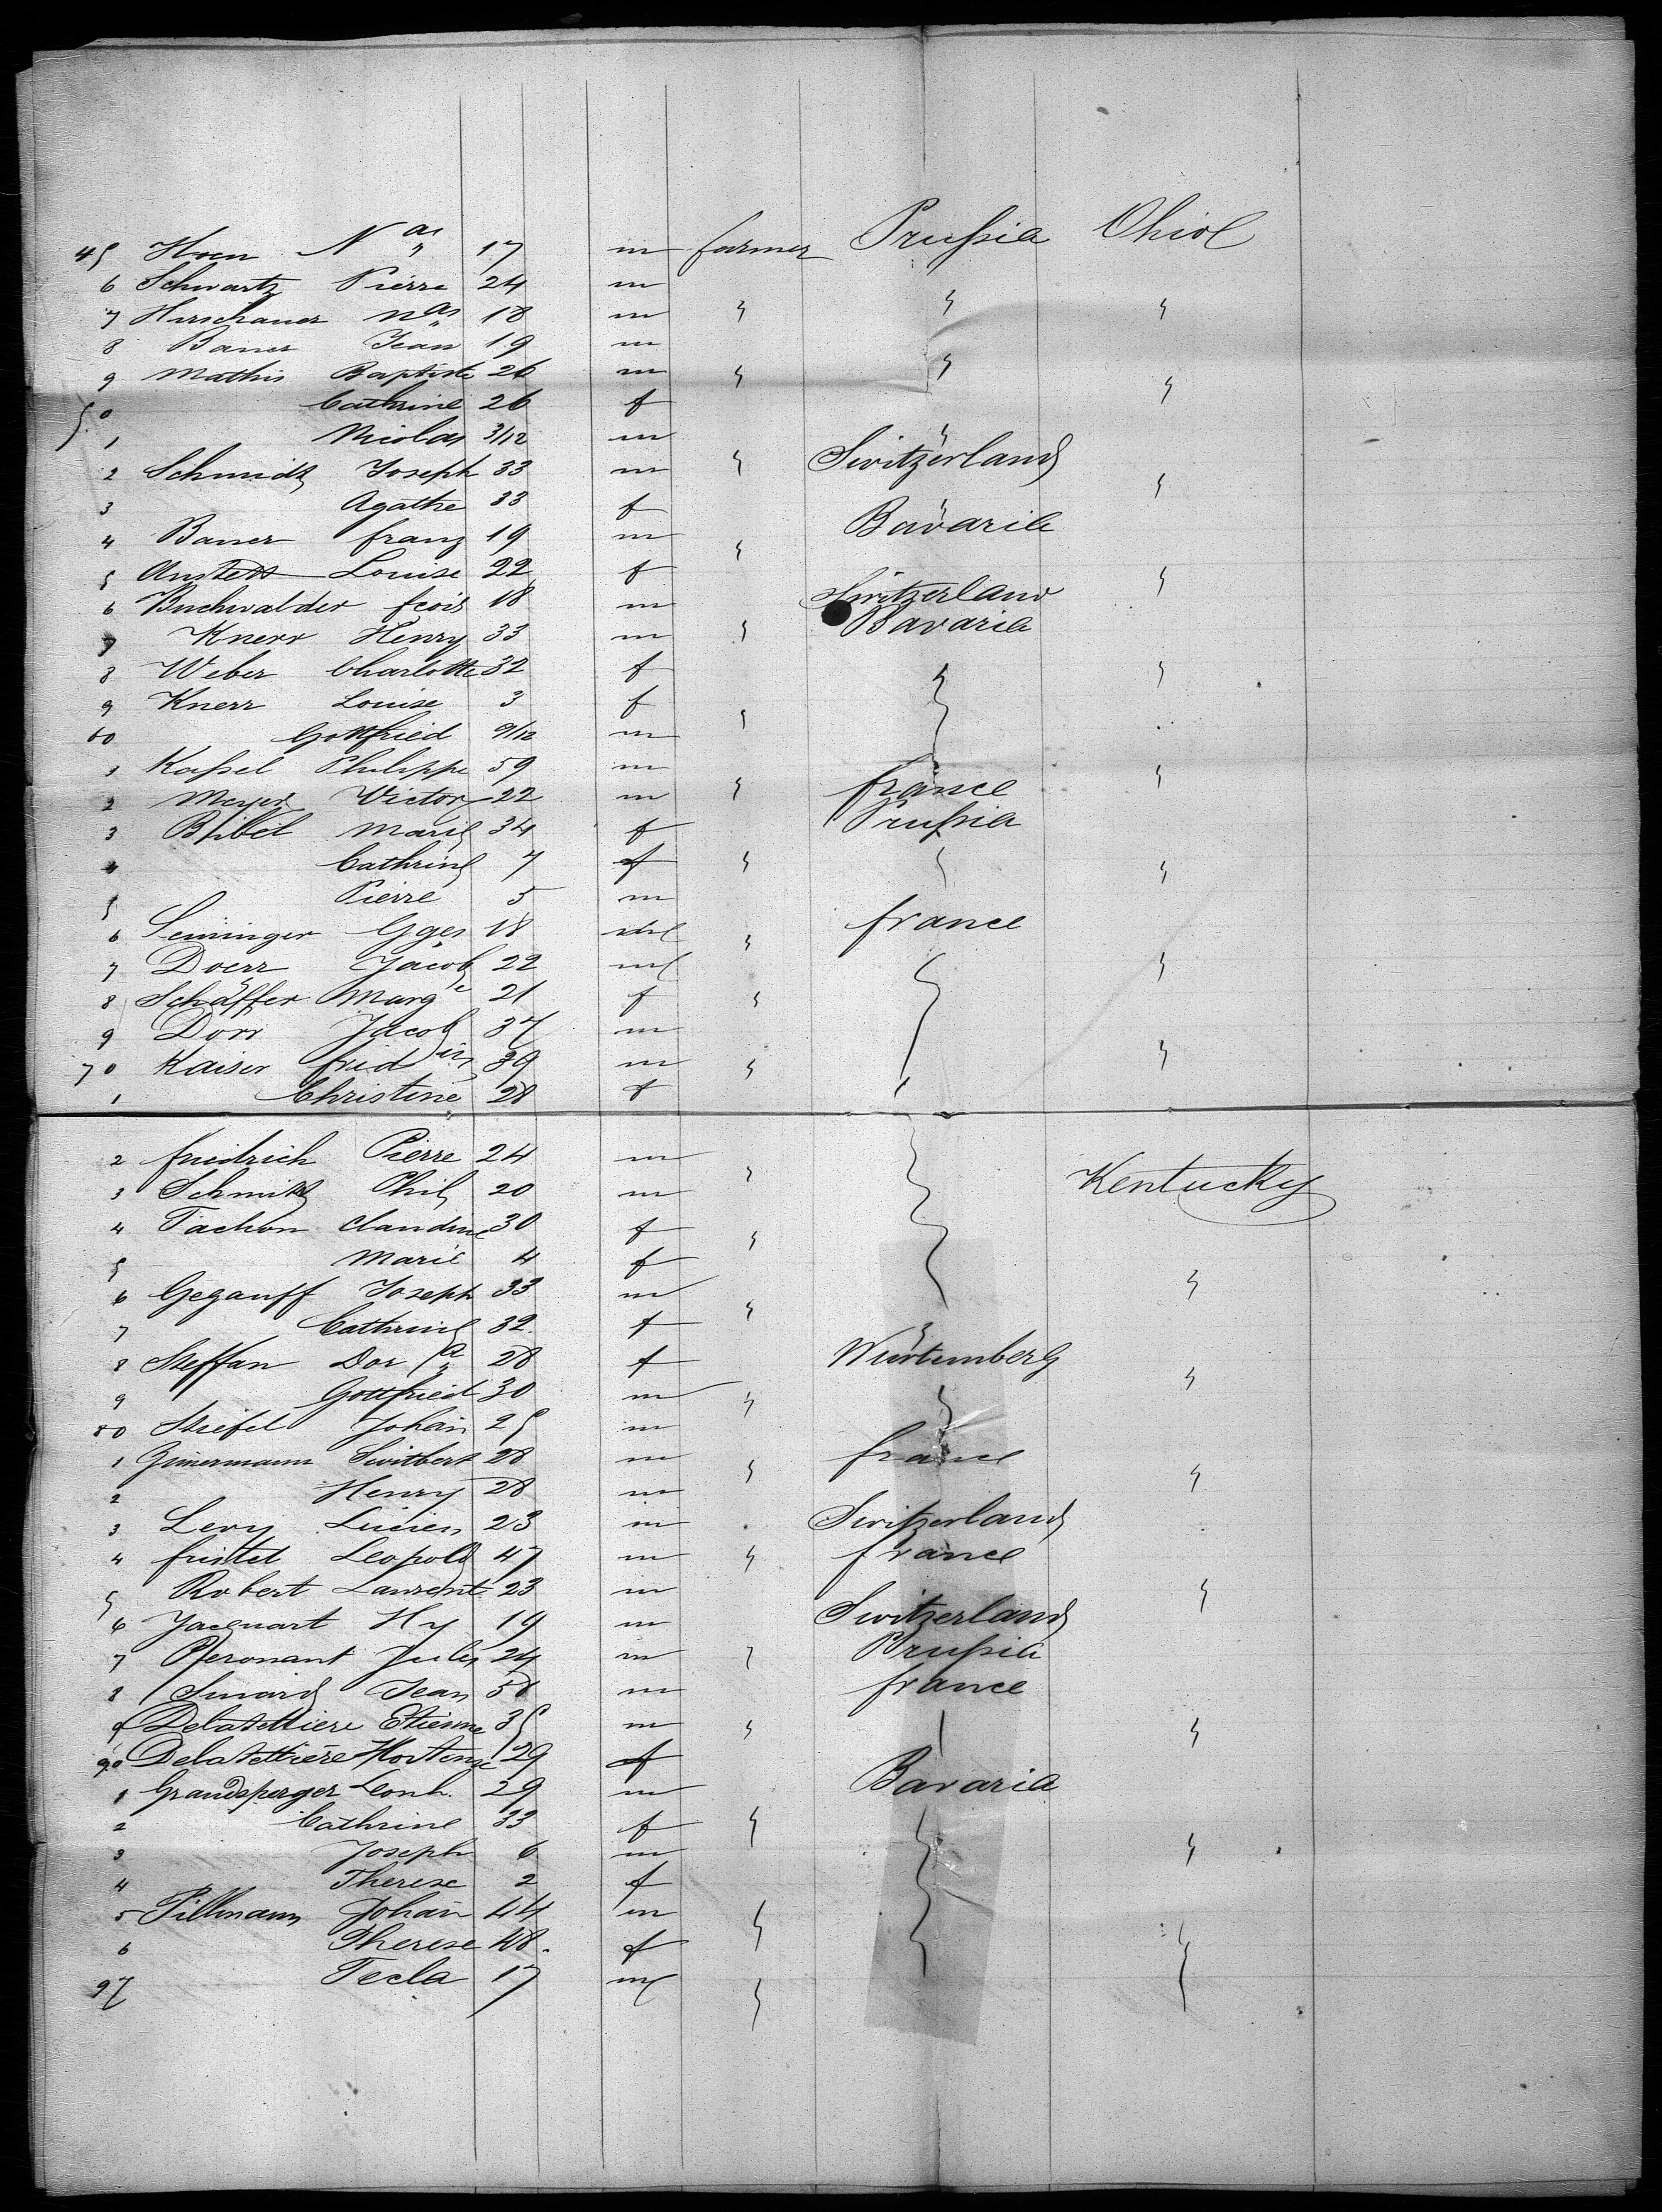 45 Horn Nas 17 m farmer Prussia Ohio
6 Schwartz Pierre 24 m
7 Hirschauer Nas 18 m " " "
8 Bauer Jean 19 m
9 Mathis Baptiste 26 m " " "
50 Cathrine 26 f
1 Nicolas 3/12 m
2 Schmidt Joseph 33 m " Switzerland
3 Agathe 33 f "
4 Bauer franz 19 m " Bavaria
5 Anstett Louise 22 f "
6 Buchwalder fcois 18 m Switzerland
7 Knerr Henry 33 m " Bavaria
8 Weber Charlotte 32 f " "
9 Knerr Louise 3 f "
60 Gottfried 9/12 m
1 Kassel Philippe 59 m
2 Meyer Victor 22 m " france "
3 Bibel Marie 34 f Prussia
4 Cathrine 7 f " " "
5 Pierre 5 m
6 Leininger Gges 18 m " france
7 Doerr Jacob 22 m " "
8 Schäffer Marge 21 f "
9 Dorr Jacob 37 m
70 Kaiser fred 39 m " "
1 Christine 28 f "
2 friedrich Pierre 24 m " "
3 Schmitt Phil 20 m Kentucky
4 Tachon Claudine 30 f "
5 Marie 4 f
6 Geganff Joseph 33 m " "
7 Cathrine 32 f
8 Steffan Dor a 28 f Würtemberg
9 Gottfried 30 m " " "
80 Stiefel Johan 25 m
1 Switbert 28 m " france "
2 Henry 28 m
3 Levy Lucien 23 m Switzerland
4 fristel Leopold 47 m " france
5 Robert Laurent 23 m "
6 Jacquart Hy 19 m Switzerland
7 Jules 24 m " Prussia
8 Simard Jean 58 m france
9 Delatettiere Etienne 35 m " " "
90 Delatettiere Hortense 29 f
1 Grandsperger Leonh. 29 m Bavaria
2 Cathrine 33 f " "
3 Joseph 6 m "
4 Therese 2 f
5 Pillmann Johan 44 m " "
6 Therese 48 f "
97 Tecla 17 m "